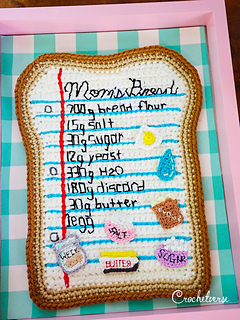 Mom's Bread
700g bread flour
15g salt
30g sugar
12g yeast
330g H2O
180g discard
30g butter
1egg
SALT
YEAST
BUTTER
SUGAR
Crochetverse